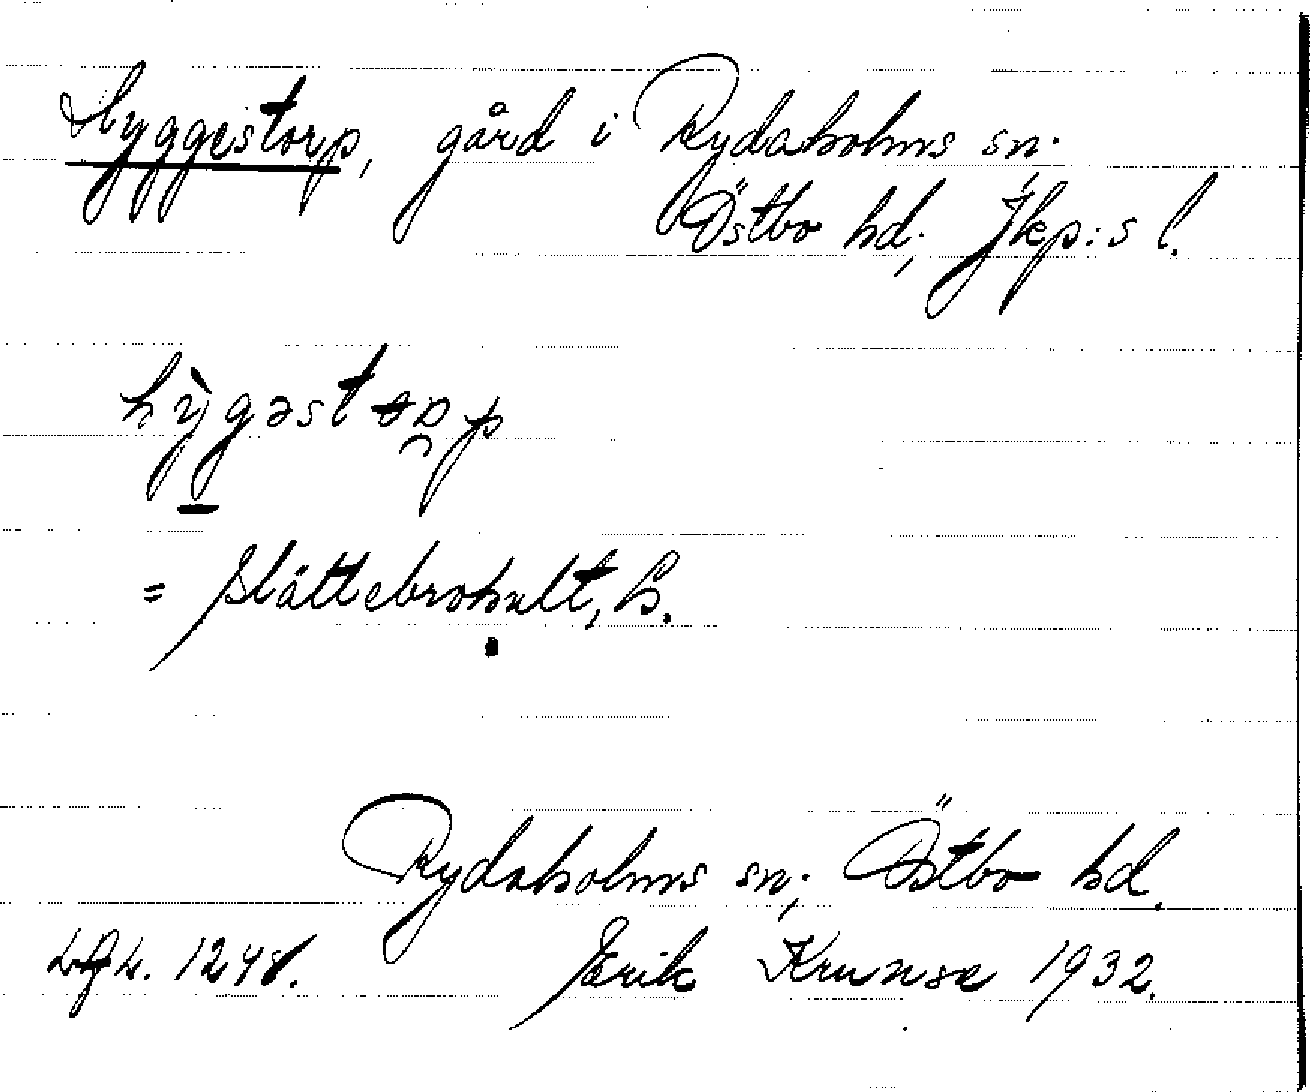 Hyggestorp, gård i Rydaholms sn.
Östbo hd; Jkp:s l.
hỳgəst
= Slättebrohult, h.
Rydaholms sn; Östbo hd.
1248. Erik Krunse 1932.